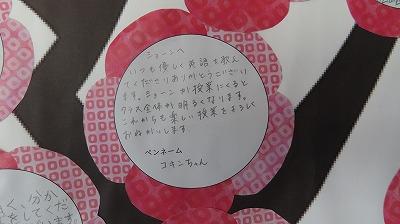 ショーンへ
いつも優しく英語を教え
てくださりありがとうございい
ます。ショーンが授業にくると
クラス全体が明るくなります。
これからも楽しい授業をよろしく
おねがいします
ペンネーム
コキンちゃん
く、分か
をしてくだ
います